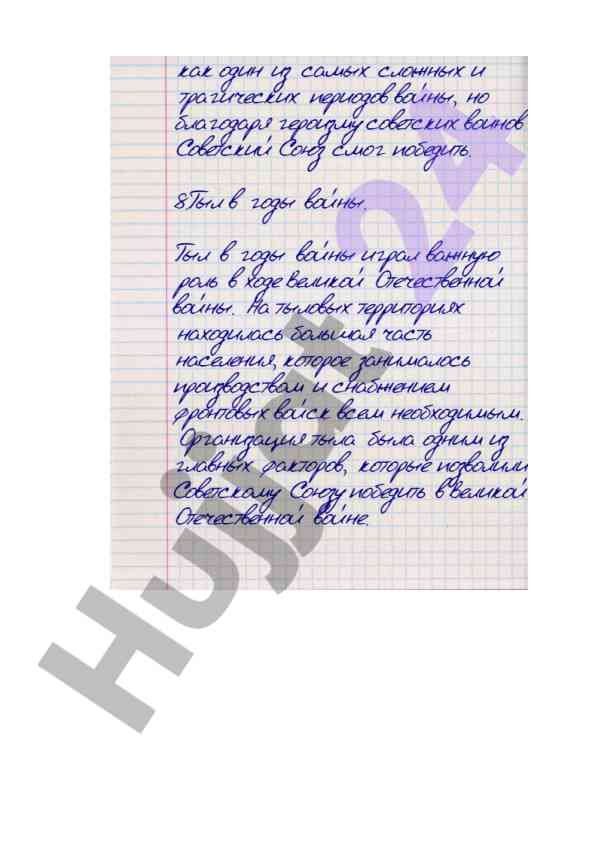 как один из самых сложных и
трагических периодов войны, но
благодаря героизму советских воинов
Советский Союз смог победить.
8Тыл в годы войны.
Тыл в годы войны играл важную
роль в ходе Великой Отечественной
войны. На тыловых территориях
находилась большая часть
населения, которое занималось
производством и снабжением
фронтовых войск всем необходимым.
Организация тыла была одним из
главных факторов, которые позволили
Советскому Союзу победить в Великой
Отечественной войне.
Hujjat 24